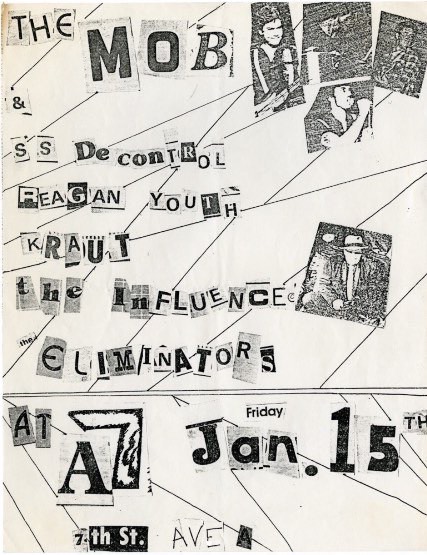 THE MOB
&
SS DeconTROL
REAGAN YOUTH
KRAUT
the InFLUENCE
the ELIMINATORS
AT A7 Friday Jan. 15TH
7th St. AVE A